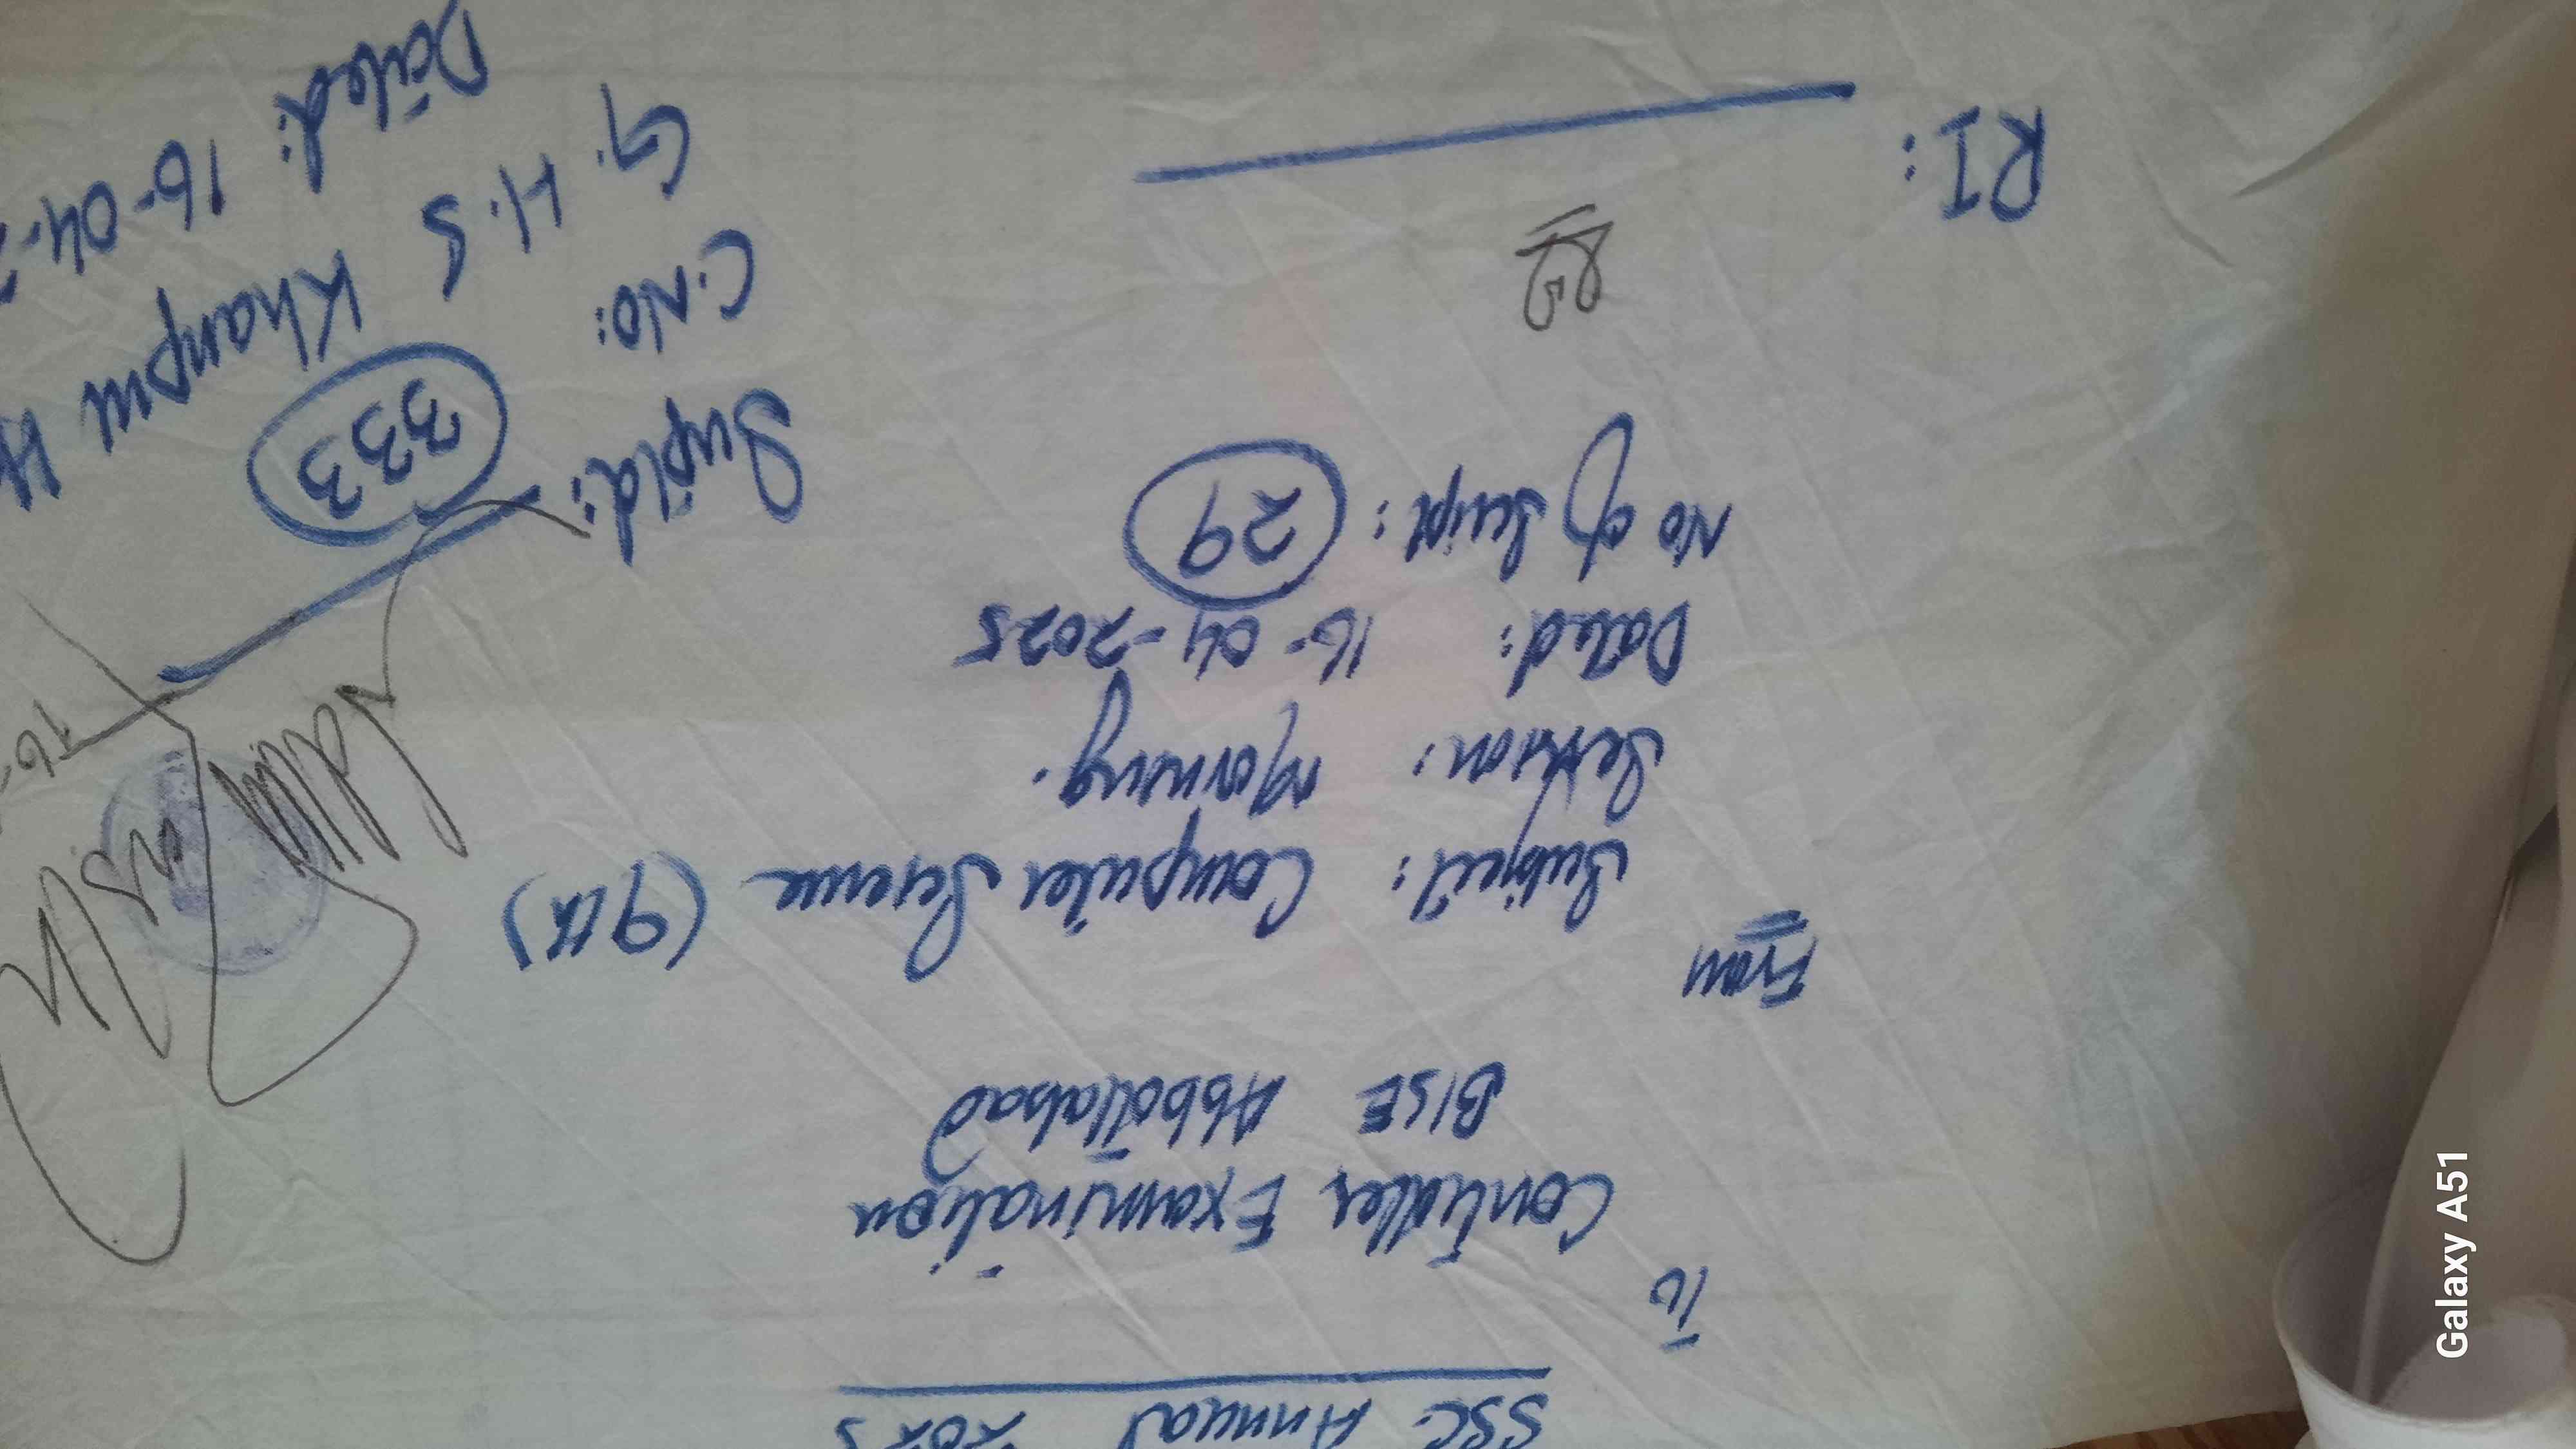 SSC. Annual 2025
To
Controller Examination
BISE Abbottabad
From
Subject: Computer Science (9th)
Session: Morning.
Dated: 16-04-2025
No of Script: 29
RI:
Suptd:
C.NO: 333
G.H.S Khanpur
Dated: 16-04-
Galaxy A51